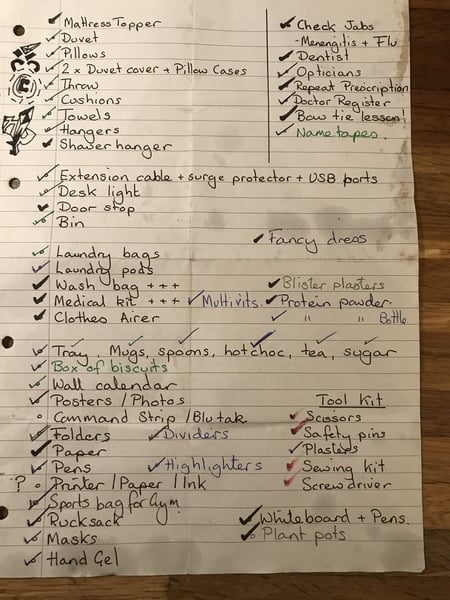 Mattress Topper
Duvet
Pillows
2 x Duvet cover + Pillow Cases
Throw
Cushions
Towels
Hangers
Shower hanger
Check Jabs
- Menengitis + Flu
Dentist
Opticians
Repeat Preocription
Doctor Register
Bow tie lesson!
Nametapes.
Extension cable + surge protector + USB ports
Desk light
Door stop
Bin
Fancy dress
Laundry bags
Laundry pods
Wash bag +++
Medical kit +++ Multivits.
Clothes Airer
Blister plasters
Protein powder.
" " Bottle
Tray, Mugs, spoons, hot choc, tea, sugar
Box of biscuits
Wall calendar
Posters / Photos
Command Strip / Blu tak
Folders Dividers
Paper
Pens Highlighters
? Printer / Paper / Ink
Sports bag for Gym
Rucksack
Masks
Hand Gel
Tool kit
Scissors
Safety pins
Plasters
Sewing kit
Screwdriver
Whiteboard + Pens.
Plant pots